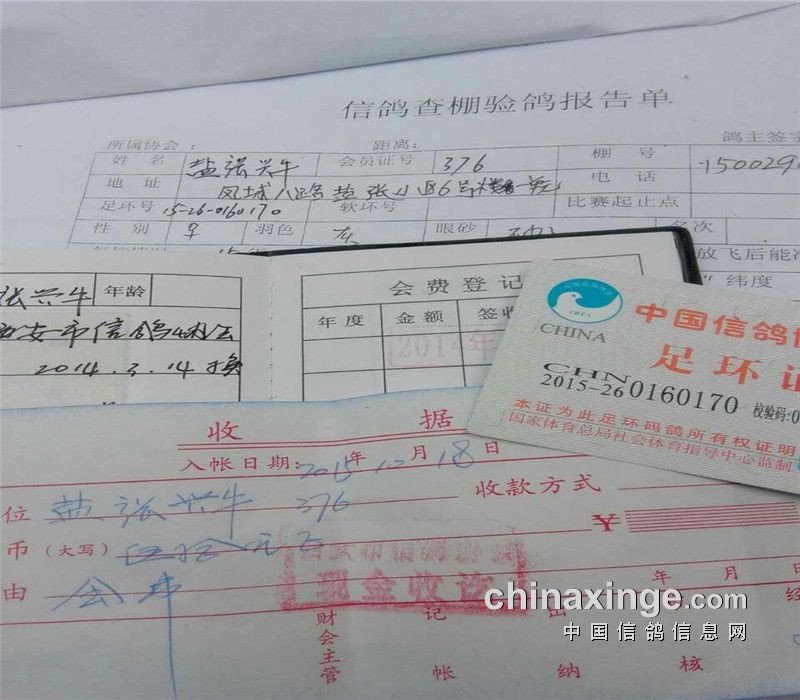 信鸽查棚验鸽报告单
所属协会： 距离： 鸽主签字
姓名 盐张兴牛 会员证号 376 棚号
地址 凤城八路盐张小区6号楼一单元 电话 1500290
足环号 15-26-0160170 软环号 比赛起止点
性别 ♀ 羽色 灰 眼砂 名次
放飞后能
纬度
张兴牛 年龄
西安市信鸽协会
2014.3.14换
会费登记
年度 金额 签收
2014年
中国信鸽
CRPA
CHINA
足环证
CHN
2015-26 0160170 校验码:0
本证为此足环码鸽所有权证明
国家体育总局社会体育指导中心监制
收据
入帐日期: 2015年12月18日
位 盐张兴牛 376 收款方式
币（大写）伍拾元正 ¥
由 会费
西安市信鸽协会
现金收讫
年 月 日
财会主管 记帐 出纳 核 经
chinaxinge.com
中国信鸽信息网